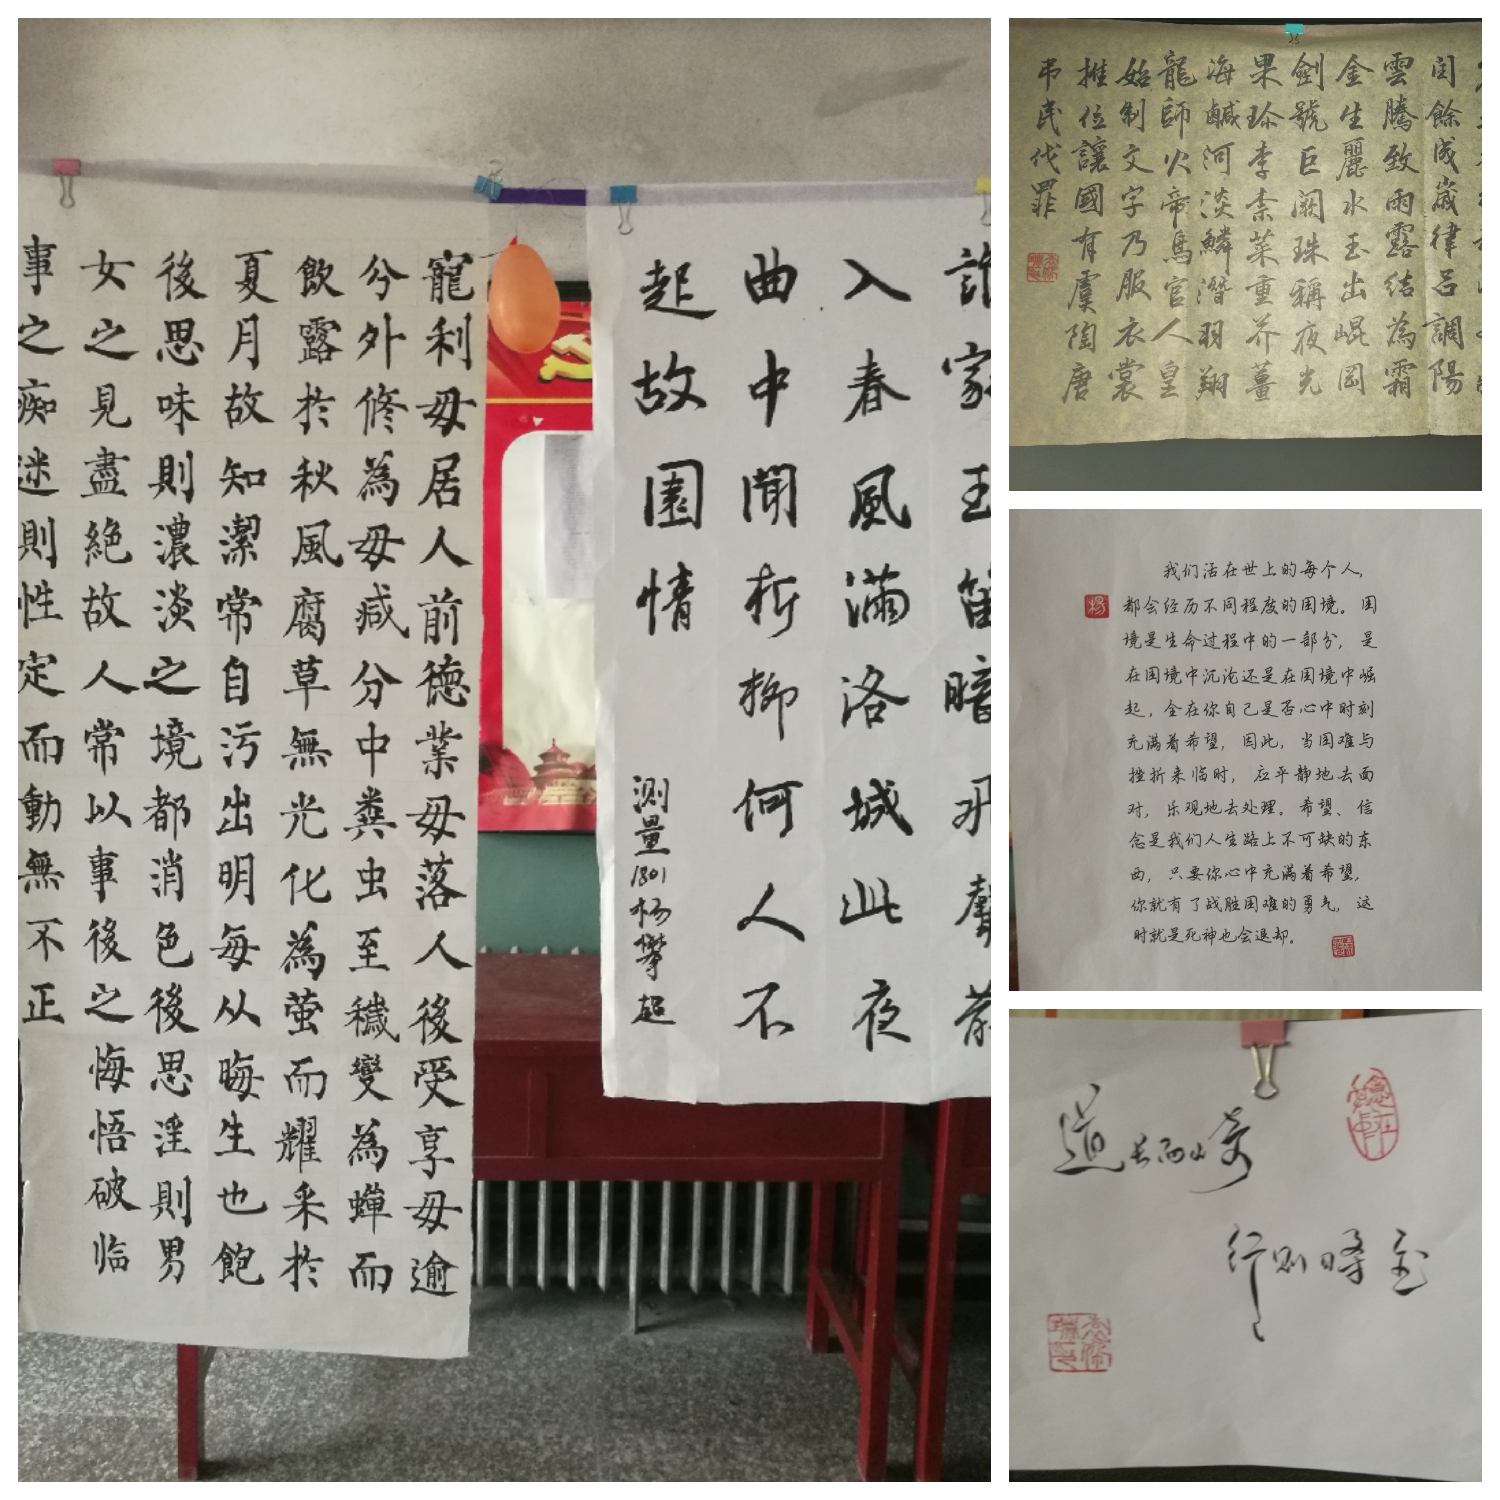 寵利毋居人前德業毋落人後受享毋逾
分外修為毋减分中糞虫至穢變為蟬而
飲露於秋風腐草無光化為萤而耀采於
夏月故知潔常自污出明每从晦生也飽
後思味則濃淡之境都消色後思淫則男
女之見盡絕故人常以事後之悔悟破临
事之痴迷則性定而動無不正
誰家玉笛暗飛聲散
入春風滿洛城此夜
曲中聞折柳何人不
起故園情
测量1801杨攀超
閏餘成歲律呂調陽
雲騰致雨露結為霜
金生麗水玉出崐岡
劍號巨闕珠稱夜光
果珍李柰菜重芥薑
海鹹河淡鱗潛羽翔
龍師火帝鳥官人皇
始制文字乃服衣裳
推位讓國有虞陶唐
弔民伐罪
我们活在世上的每个人,
都会经历不同程度的困境。困
境是生命过程中的一部分, 是
在困境中沉沦还是在困境中崛
起, 全在你自己是否心中时刻
充满着希望, 因此, 当困难与
挫折来临时, 应平静地去面
对, 乐观地去处理。希望、信
念是我们人生路上不可缺的东
西, 只要你心中充满着希望,
你就有了战胜困难的勇气, 这
时就是死神也会退却。
杨
道长而崎
行则至